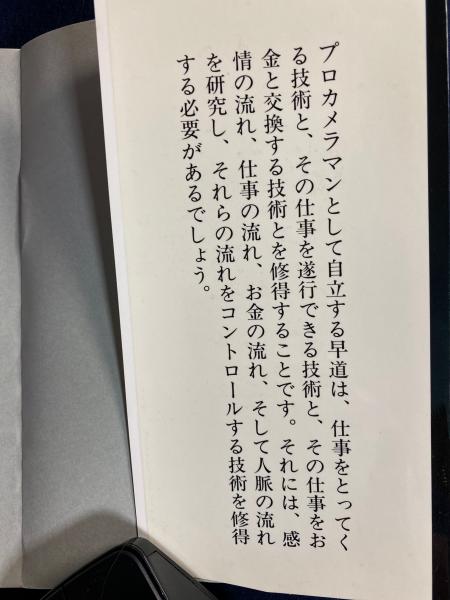 プロカメラマンとして自立する早道は、仕事をとってく
る技術と、その仕事を遂行できる技術と、その仕事をお
金と交換する技術とを修得することです。それには、感
情の流れ、仕事の流れ、お金の流れ、そして人脈の流れ
を研究し、それらの流れをコントロールする技術を修得
する必要があるでしょう。